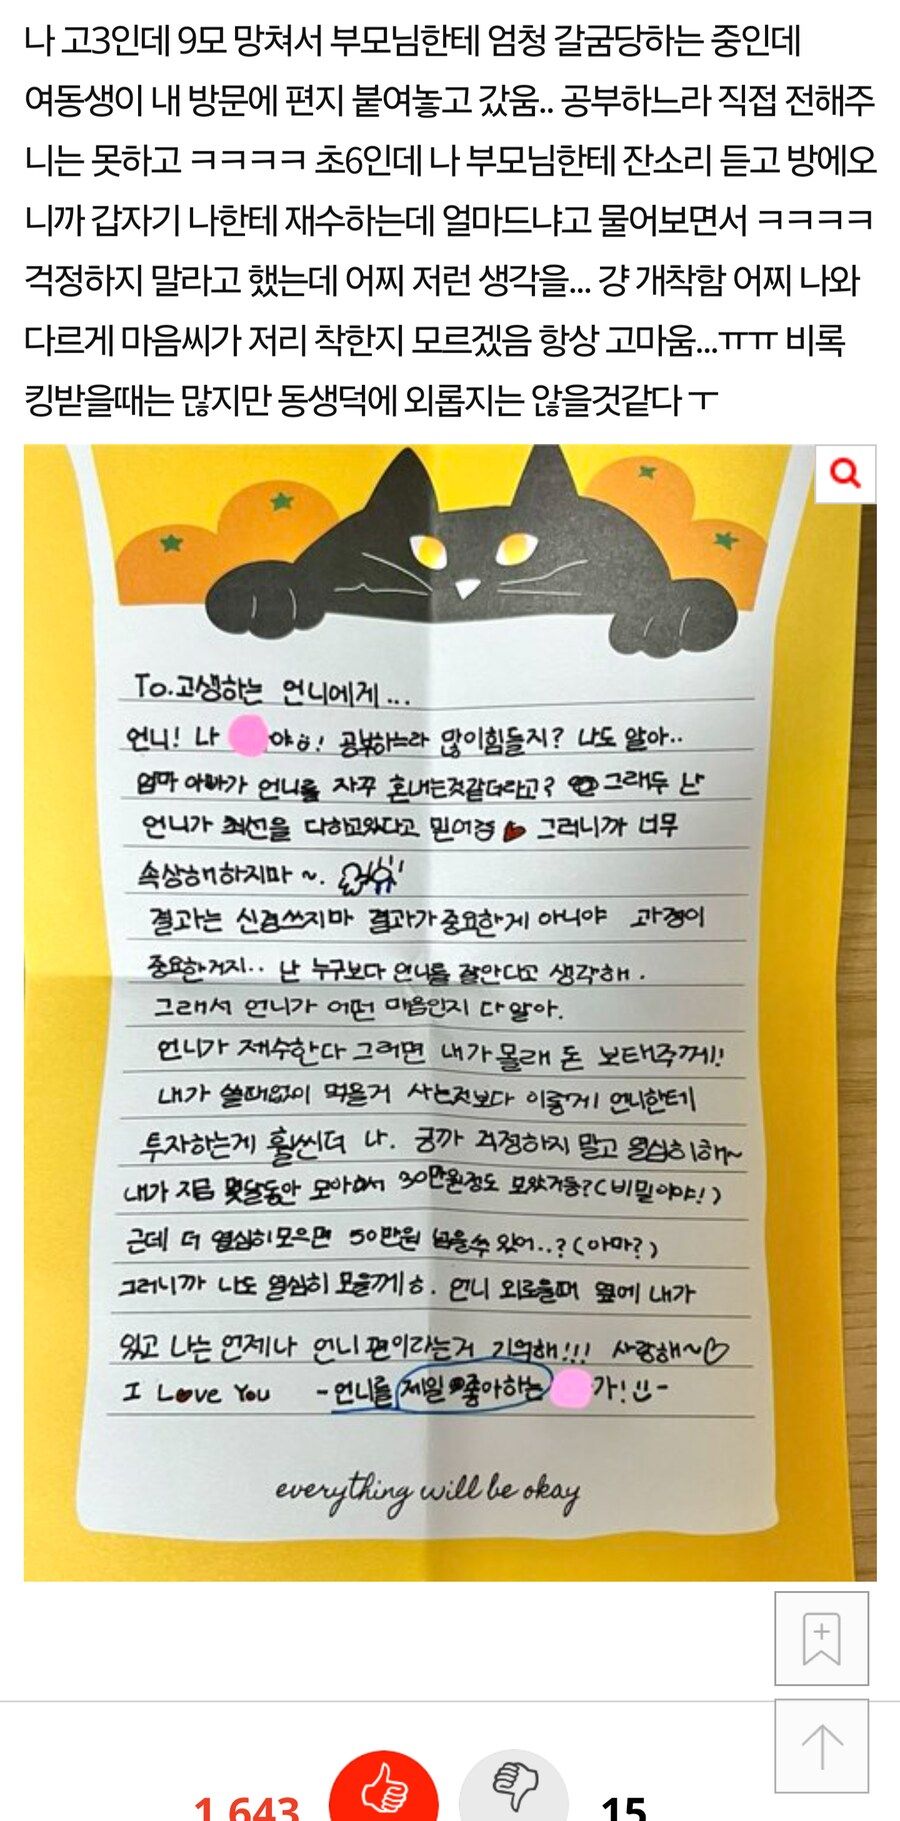 나 고3인데 9모 망쳐서 부모님한테 엄청 갈굼당하는 중인데
여동생이 내 방문에 편지 붙여놓고 갔움.. 공부하느라 직접 전해주
니는 못하고 ㅋㅋㅋㅋ 초6인데 나 부모님한테 잔소리 듣고 방에오
니까 갑자기 나한테 재수하는데 얼마드냐고 물어보면서 ㅋㅋㅋㅋ
걱정하지 말라고 했는데 어찌 저런 생각을... 걍 개착함 어찌 나와
다르게 마음씨가 저리 착한지 모르겠음 항상 고마움...ㅠㅠ 비록
킹받을때는 많지만 동생덕에 외롭지는 않을것같다 ㅜ
To.고생하는 언니에게...
언니! 나 야ㅎ! 공부하느라 많이힘들지? 나도 알아..
엄마 아빠가 언니를 자꾸 혼내는것같더라고? 그래두 난
언니가 최선을 다하고있다고 믿어경 그러니까 너무
속상해하지마 ~.
결과는 신경쓰지마 결과가 중요한게 아니야 과정이
중요한거지.. 난 누구보다 언니를 잘안다고 생각해.
그래서 언니가 어떤 마음인지 다 알아.
언니가 재수한다 그러면 내가 몰래 돈 보태주께!!
내가 쓸때없이 먹을거 사는것보다 이렇게 언니한테
투자하는게 훨씬더 나. 긍까 걱정하지 말고 열심히해~
내가 지금 몇달동안 모아놔서 30만원정도 모았거등?(비밀이야!)
근데 더 열심히모으면 50만원 넘을수 있어..?(아마?)
그러니까 나도 열심히 모을께ㅎ. 언니 외로울때 옆에 내가
있고 나는 언제나 언니 편이라는거 기억해!!! 사랑해~♡
I Love You -언니를 제일 좋아하는 가!-
everything will be okay
1,643 15